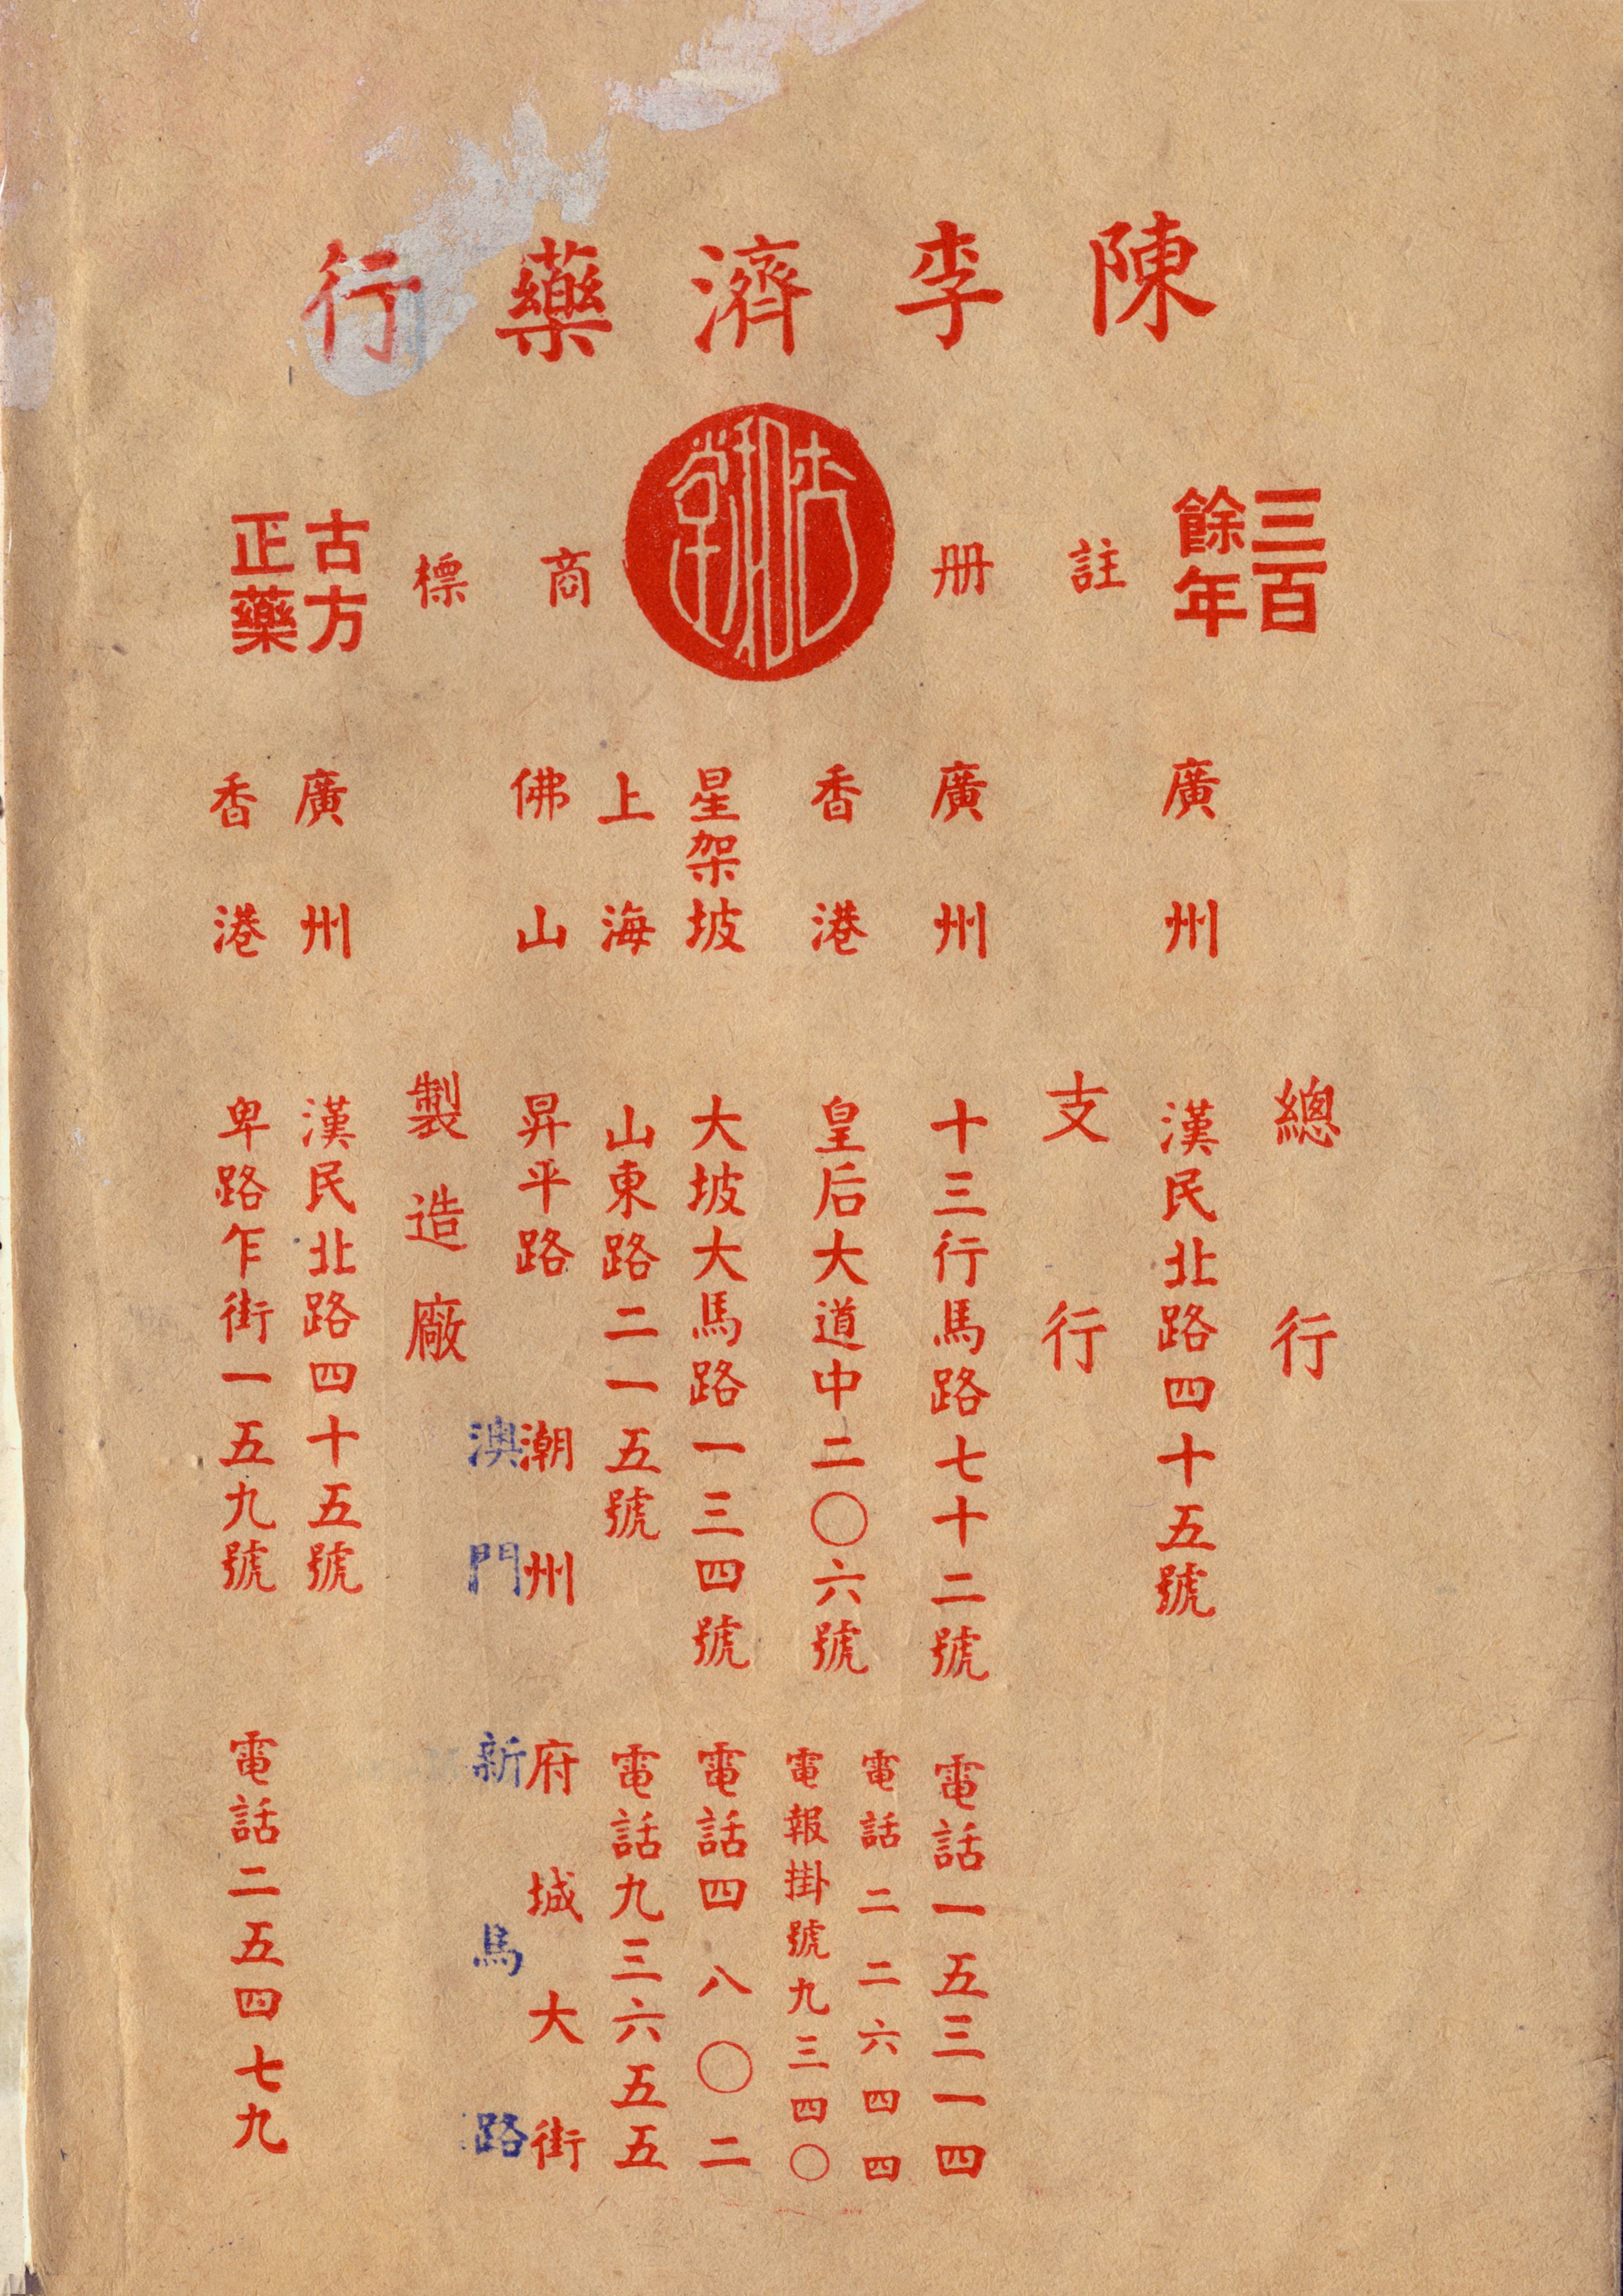 陳李濟藥行
三百
餘年
註册
杏和堂
商標
古方
正藥
總行
廣州 漢民北路四十五號
支行
廣州 十三行馬路七十二號 電話一五三一四
香港 皇后大道中二〇六號 電話二二六四四
電報掛號九三四〇
星架坡 大坡大馬路一三四號 電話四八〇二
上海 山東路二一五號 電話九三六五五
佛山 昇平路 潮州 府城大街
澳門 新馬路
製造廠
廣州 漢民北路四十五號
香港 卑路乍街一五九號 電話二五四七九